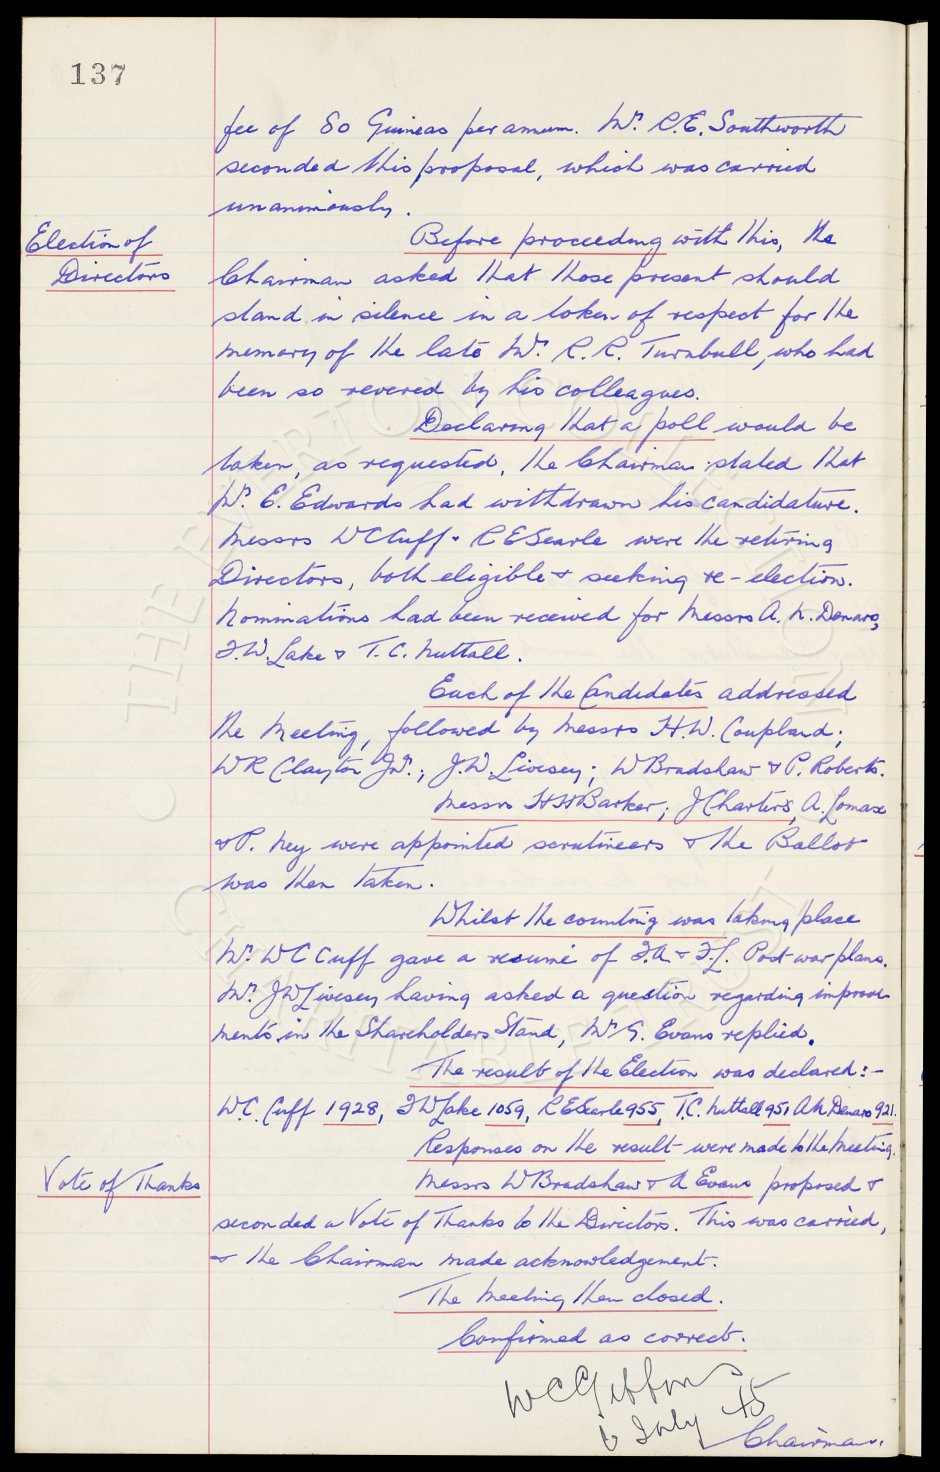 137
fee of 80 Guineas per annum. Mr. R.E. Southworth
seconded this proposal, which was carried
unanimously.
Election of
Directors
Before proceeding with this, the
Chairman asked that those present should
stand in silence in a token of respect for the
memory of the late Mr. R.R. Turnbull, who had
been so revered by his colleagues.
Declaring that a poll would be
taken, as requested, the Chairman stated that
Mr. E. Edwards had withdrawn his candidature.
Messrs W C Cuff & R E Searle were the retiring
Directors, both eligible & seeking re-election.
Nominations had been received for Messrs A. N. Denaro,
F.W. Lake & T.C. Nuttall.
Each of the Candidates addressed
the Meeting, followed by Messrs H.W. Coupland;
W R Clayton Jnr.; J.W. Livesey; W Bradshaw & P. Roberts.
Messrs H H Barker; J Charters, A. Lomax
& P. Ney were appointed scrutineers & the Ballot
was then taken.
Whilst the counting was taking place
Mr. W C Cuff gave a resumé of F.A. & F.L. Post-war plans.
Mr. J W Livesey having asked a question regarding improve-
ments in the Shareholders Stand, Mr G. Evans replied.
The result of the Election was declared:-
W.C. Cuff 1928, F W Lake 1059, R E Searle 955, T.C. Nuttall 951 A N Denaro 921.
Responses on the result were made to the Meeting.
Vote of Thanks
Messrs W Bradshaw & A Evans proposed &
seconded a Vote of Thanks to the Directors. This was carried,
& the Chairman made acknowledgement.
The Meeting then closed.
Confirmed as correct.
W C Gibbins
6 July 45
Chairman.
© THE EVERTON COLLECTION
CHARITABLE TRUST